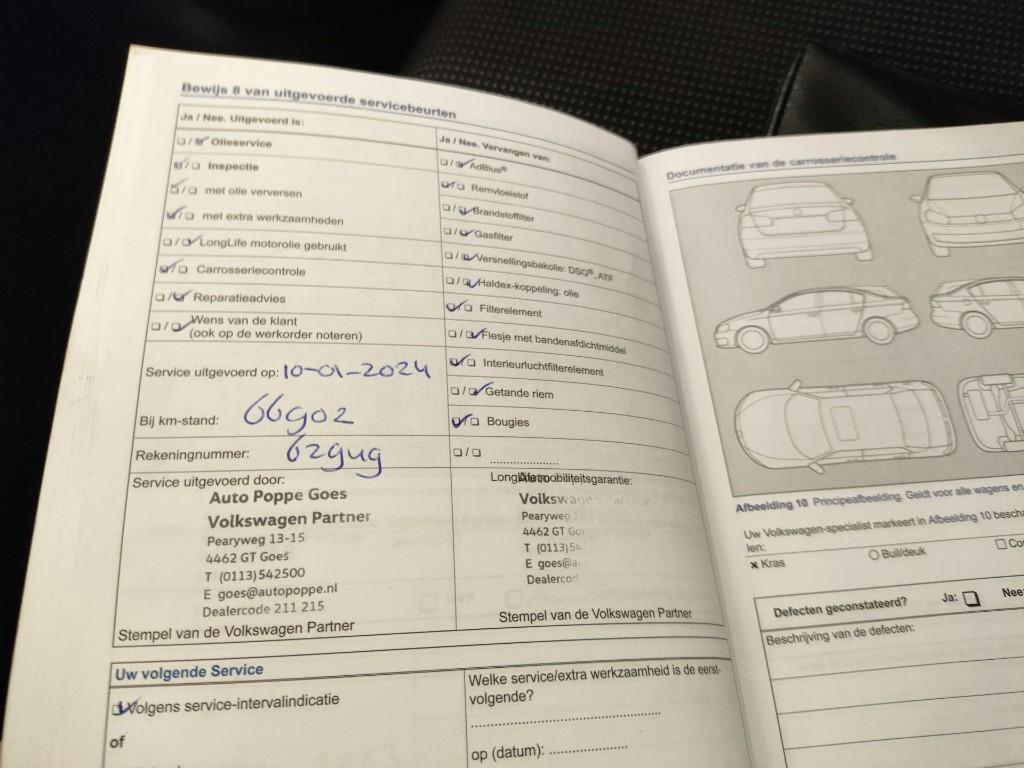 Bewijs 8 van uitgevoerde servicebeurten
Ja / Nee. Uitgevoerd is:
☐/☑ Olieservice
☑/☐ Inspectie
☑/☐ met olie verversen
☑/☐ met extra werkzaamheden
☐/☑ LongLife motorolie gebruikt
☑/☐ Carrosseriecontrole
☐/☑ Reparatieadvies
☐/☑ Wens van de klant
(ook op de werkorder noteren)
Service uitgevoerd op: 10-01-2024
Bij km-stand: 66902
Rekeningnummer: 62949
Service uitgevoerd door:
Auto Poppe Goes
Volkswagen Partner
Pearyweg 13-15
4462 GT Goes
T (0113)542500
E goes@autopoppe.nl
Dealercode 211 215
Stempel van de Volkswagen Partner
Ja / Nee. Vervangen van:
☐/☑ AdBlue®
☑/☐ Remvloeistof
☐/☑ Brandstoffilter
☐/☑ Gasfilter
☐/☑ Versnellingsbakolie: DSG®, ATF
☐/☑ Haldex-koppeling: olie
☑/☐ Filterelement
☐/☑ Flesje met bandenafdichtmiddel
☑/☐ Interieurluchtfilterelement
☐/☑ Getande riem
☑/☐ Bougies
☐/☐ ....................
LongLife mobiliteitsgarantie:
Volkswagen Partner
Pearyweg
4462 GT Goes
T (0113)54
E goes@a
Dealercod
Stempel van de Volkswagen Partner
Uw volgende Service
☑ Volgens service-intervalindicatie
of
Welke service/extra werkzaamheid is de eerst-
volgende?
..................................................
op (datum): ....................
Documentatie van de carrosseriecontrole
Afbeelding 10 Principeafbeelding. Geldt voor alle wagens en
Uw Volkswagen-specialist markeert in Afbeelding 10 bescha
len:
× Kras
○ Buil/deuk
☐ Cor
Defecten geconstateerd? Ja: ☐ Nee:
Beschrijving van de defecten: